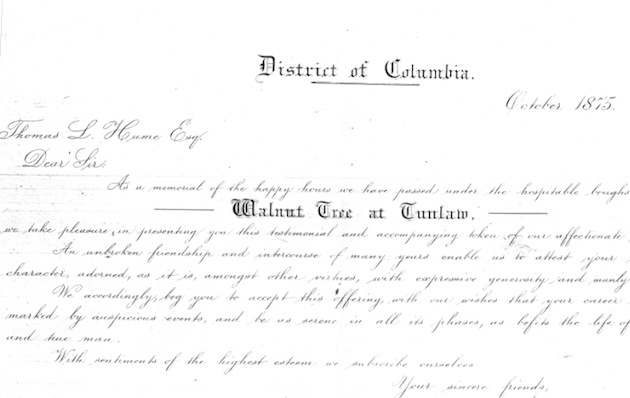 District of Columbia.
October 1875.
Thomas L. Hume Esq.
Dear Sir:
As a memorial of the happy hours we have passed under the hospitable boughs
Walnut Tree at Tunlaw.
we take pleasure in presenting you this testimonial and accompanying token of our affectionate
An unbroken friendship and intercourse of many years enable us to attest your
character, adorned, as it is, amongst other virtues, with expressive generosity and manly
We accordingly beg you to accept this offering, with our wishes that your career
marked by auspicious events, and be as serene in all its phases, as befits the life of
and true man.
With sentiments of the highest esteem we subscribe ourselves
Your sincere friends,